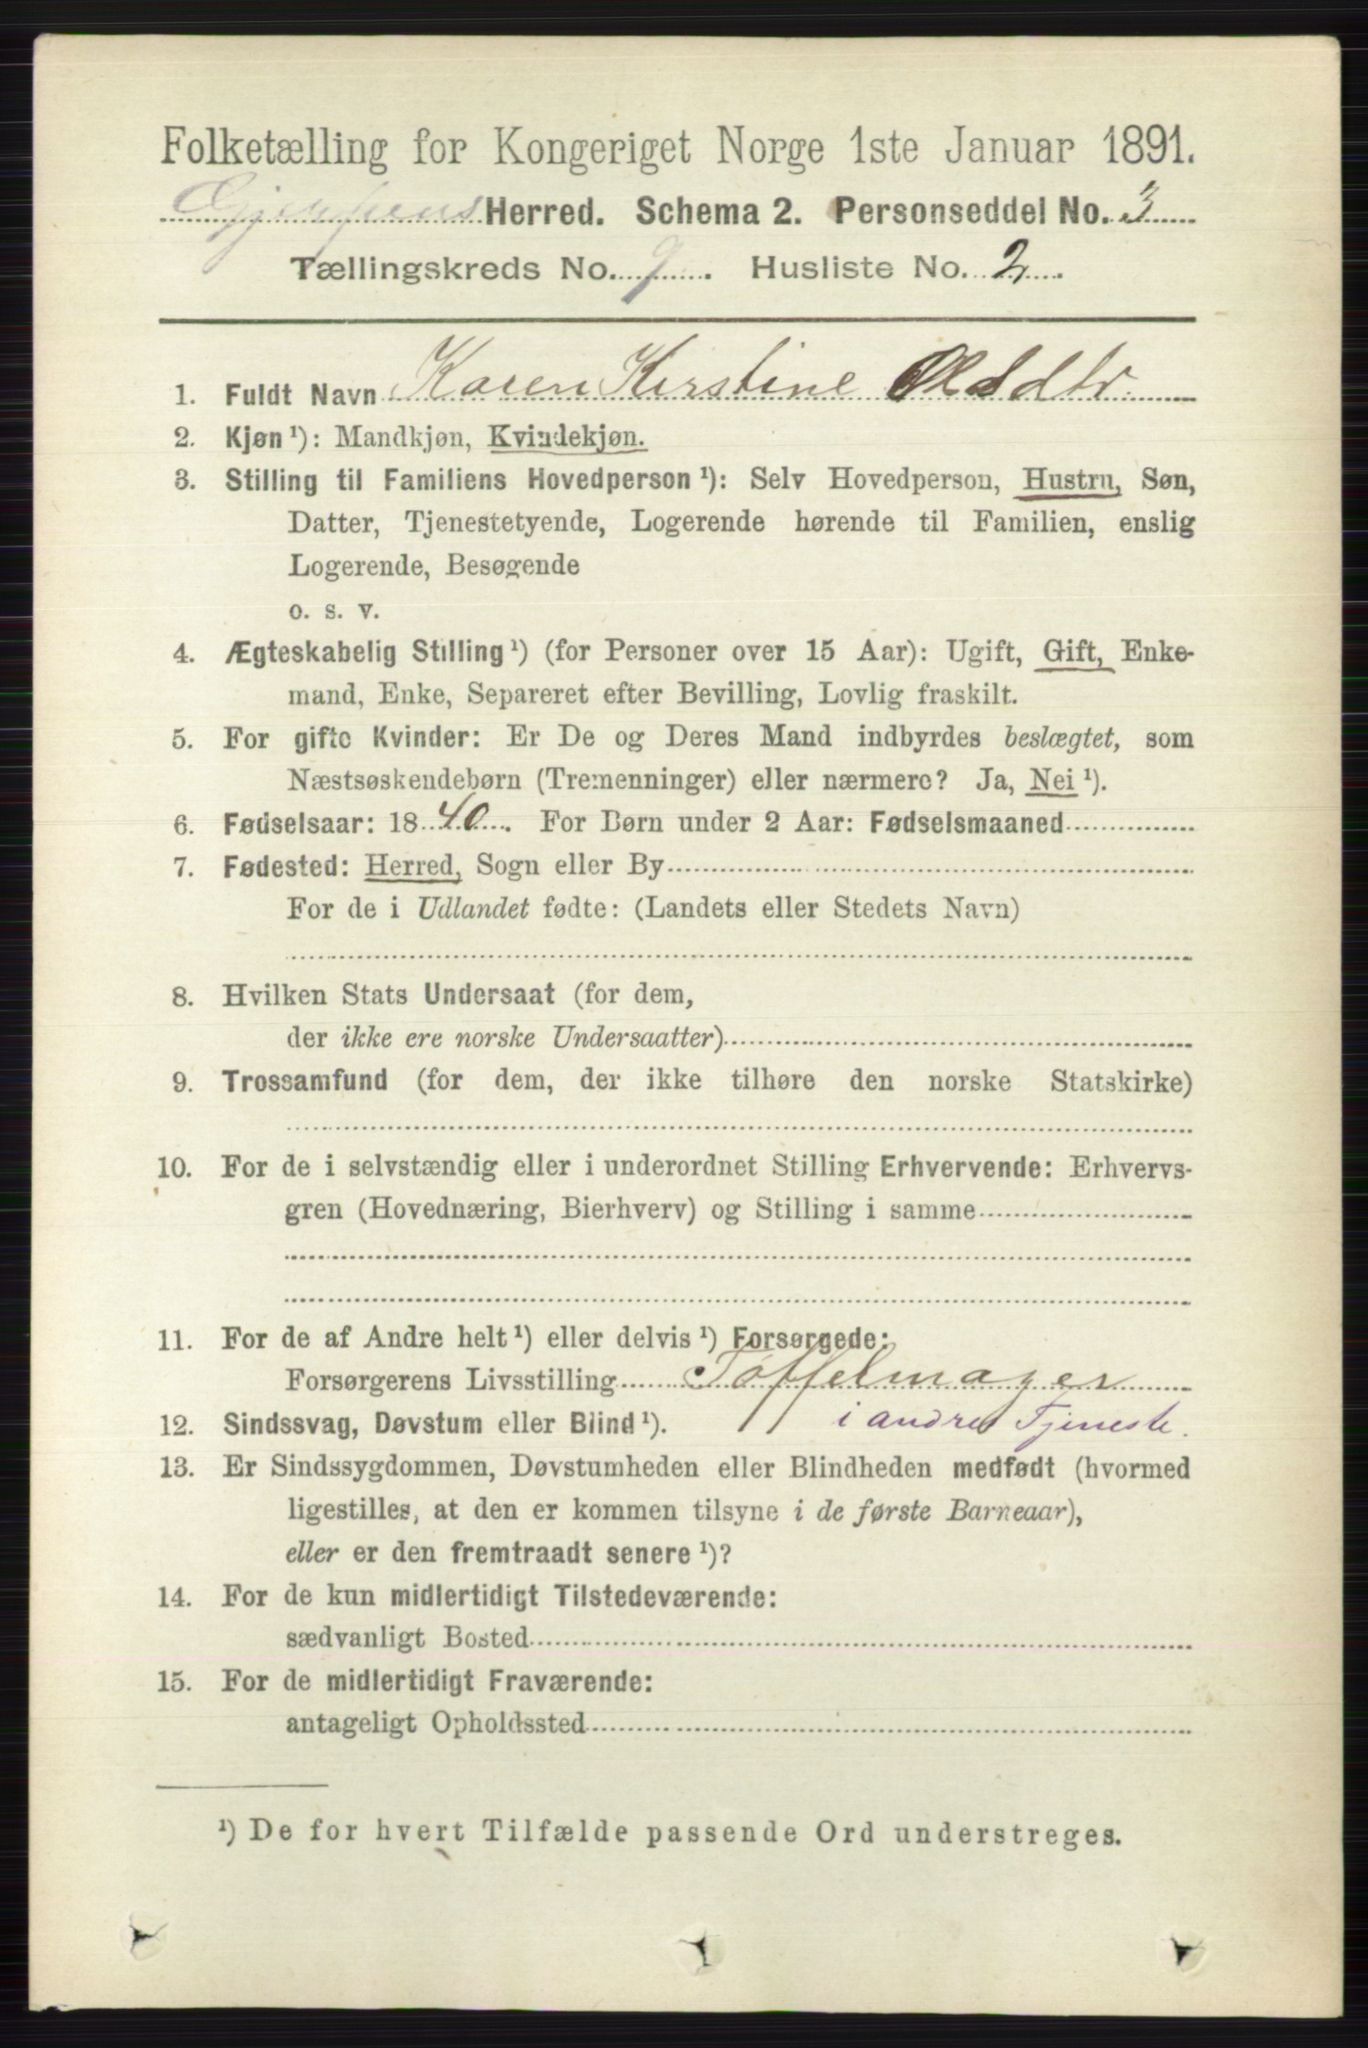 Folketælling for Kongeriget Norge 1ste Januar 1891.
Gjerpens Herred. Schema 2. Personseddel No. 3
Tællingskreds No. 9. Husliste No. 2.
1. Fuldt Navn Karen Kirstine Olsdtr.
2. Kjøn¹): Mandkjøn, Kvindekjøn.
3. Stilling til Familiens Hovedperson¹): Selv Hovedperson, Hustru, Søn,
Datter, Tjenestetyende, Logerende hørende til Familien, enslig
Logerende, Besøgende
o. s. v.
4. Ægteskabelig Stilling¹) (for Personer over 15 Aar): Ugift, Gift, Enke-
mand, Enke, Separeret efter Bevilling, Lovlig fraskilt.
5. For gifte Kvinder: Er De og Deres Mand indbyrdes beslægtet, som
Næstsøskendebørn (Tremenninger) eller nærmere? Ja, Nei¹).
6. Fødselsaar: 1840. For Børn under 2 Aar: Fødselsmaaned
7. Fødested: Herred, Sogn eller By
For de i Udlandet fødte: (Landets eller Stedets Navn)
8. Hvilken Stats Undersaat (for dem,
der ikke ere norske Undersaatter)
9. Trossamfund (for dem, der ikke tilhøre den norske Statskirke)
10. For de i selvstændig eller i underordnet Stilling Erhvervende: Erhvervs-
gren (Hovednæring, Bierhverv) og Stilling i samme
11. For de af Andre helt¹) eller delvis¹) Forsørgede:
Forsørgerens Livsstilling Tøffelmager
12. Sindssvag, Døvstum eller Blind¹). i andres Tjeneste.
13. Er Sindssygdommen, Døvstumheden eller Blindheden medfødt (hvormed
ligestilles, at den er kommen tilsyne i de første Barneaar),
eller er den fremtraadt senere¹)?
14. For de kun midlertidigt Tilstedeværende:
sædvanligt Bosted
15. For de midlertidigt Fraværende:
antageligt Opholdssted
¹) De for hvert Tilfælde passende Ord understreges.